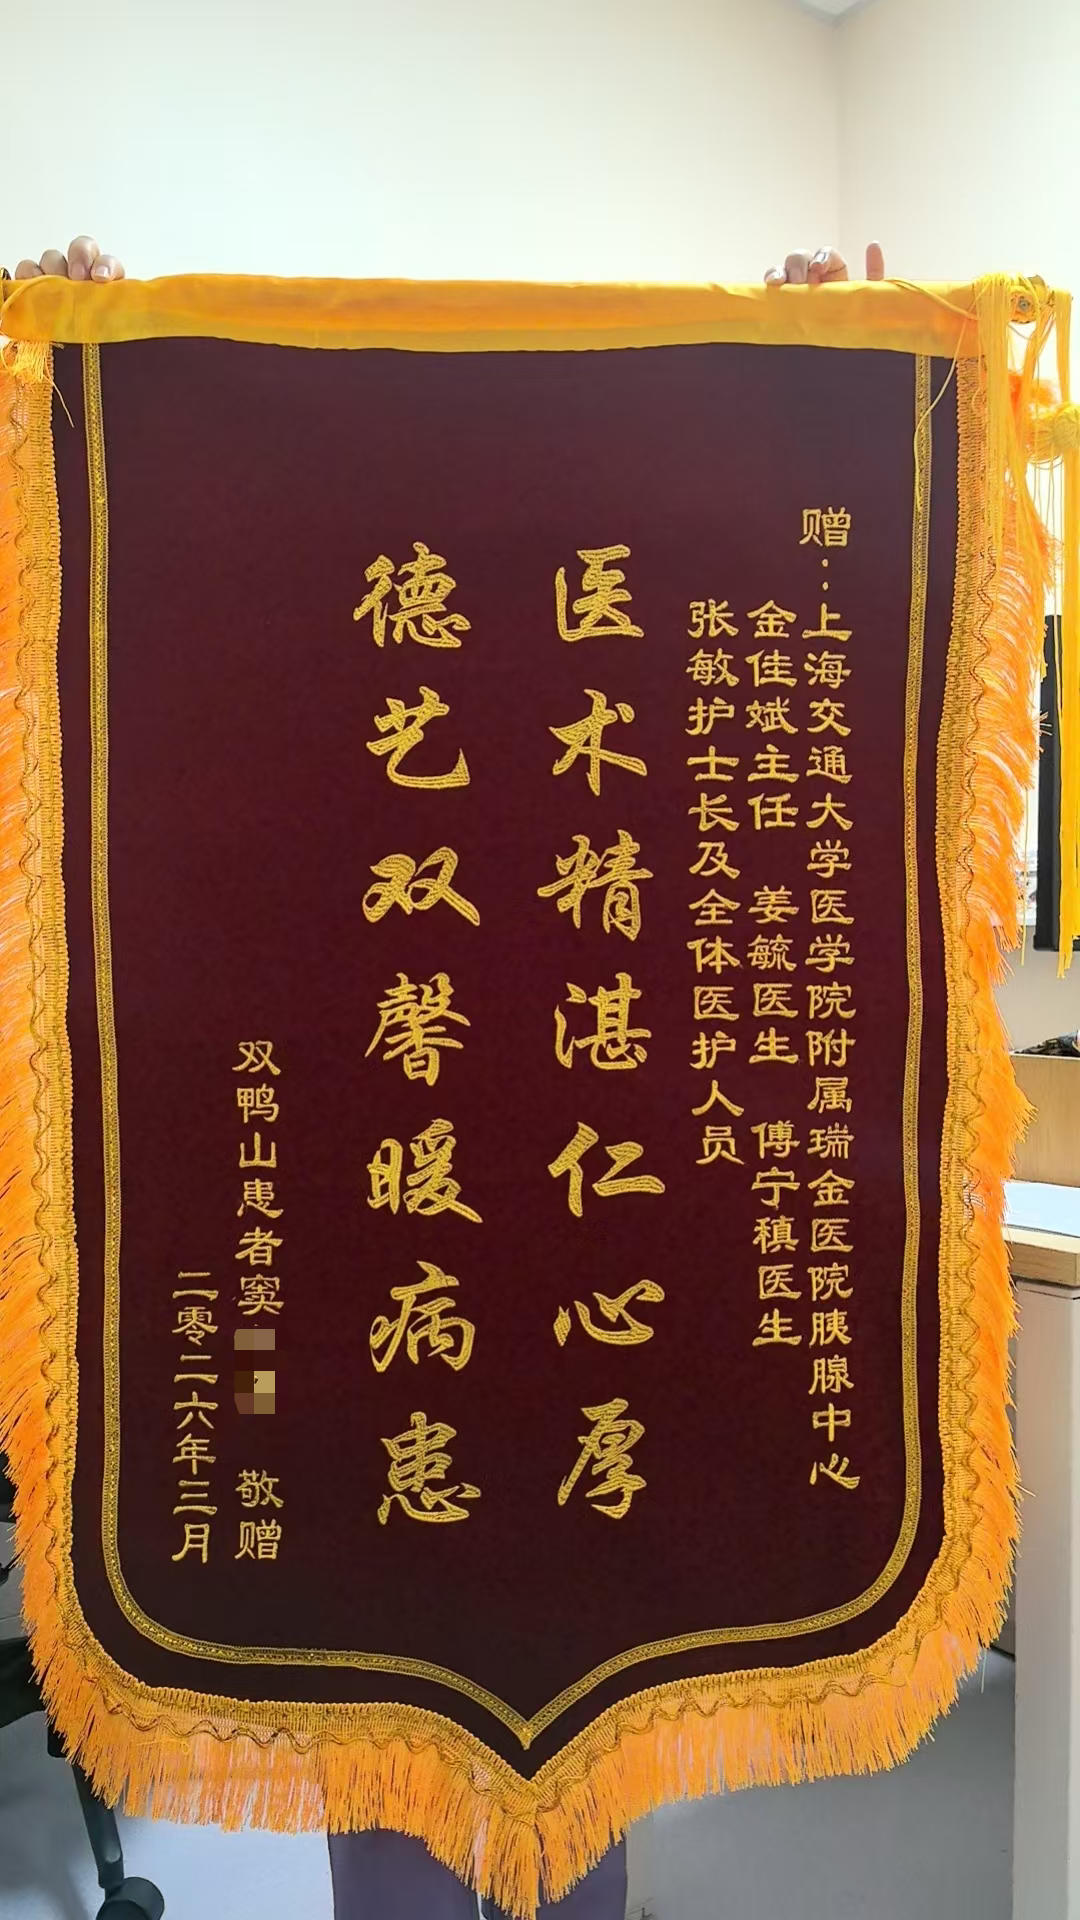 赠：上海交通大学医学院附属瑞金医院胰腺中心
金佳斌主任 姜毓医生 傅宁稹医生
张敏护士长及全体医护人员
医术精湛仁心厚
德艺双馨暖病患
双鸭山患者窦 敬赠
二零二六年三月